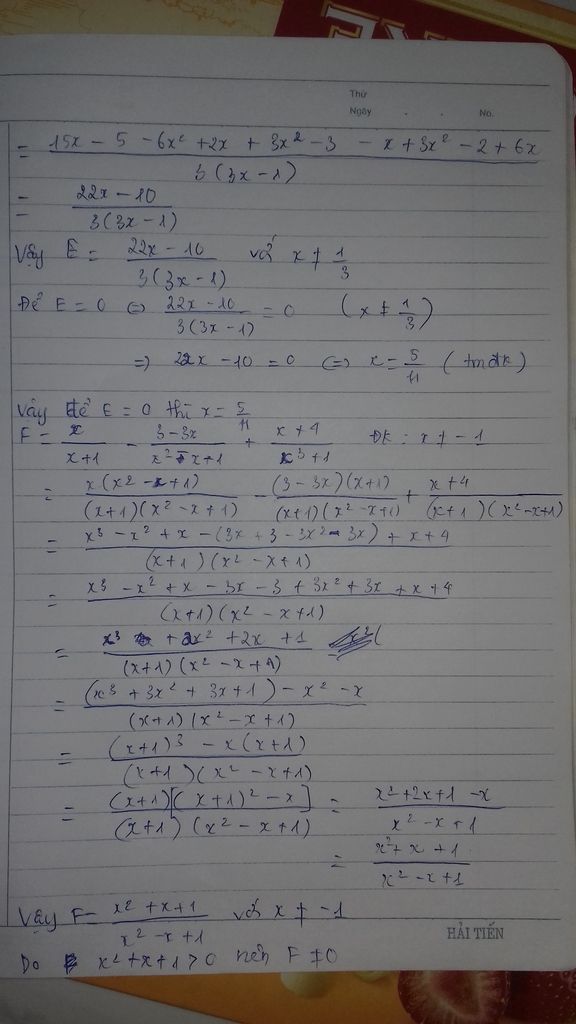 Thứ
Ngày . . No.
= 15x - 5 - 6x² + 2x + 3x² - 3 - x + 3x² - 2 + 6x / 3(3x - 1)
= 22x - 10 / 3(3x - 1)
Vậy E = 22x - 10 / 3(3x - 1) với x ≠ 1/3
Để E = 0 ⇔ 22x - 10 / 3(3x - 1) = 0 (x ≠ 1/3)
⇒ 22x - 10 = 0 ⇔ x = 5/11 (tmđk)
Vậy để E = 0 thì x = 5/11
F = x / x+1 - 3-3x / x² - x + 1 + x+4 / x³+1 ĐK: x ≠ -1
= x(x² - x + 1) / (x+1)(x² - x + 1) - (3 - 3x)(x+1) / (x+1)(x² - x + 1) + x+4 / (x+1)(x² - x + 1)
= x³ - x² + x - (3x + 3 - 3x² - 3x) + x + 4 / (x+1)(x² - x + 1)
= x³ - x² + x - 3x - 3 + 3x² + 3x + x + 4 / (x+1)(x² - x + 1)
= x³ + 2x² + 2x + 1 / (x+1)(x² - x + 1)
= (x³ + 3x² + 3x + 1) - x² - x / (x+1)(x² - x + 1)
= (x+1)³ - x(x+1) / (x+1)(x² - x + 1)
= (x+1)[(x+1)² - x] / (x+1)(x² - x + 1) = x² + 2x + 1 - x / x² - x + 1
= x² + x + 1 / x² - x + 1
Vậy F = x² + x + 1 / x² - x + 1 với x ≠ -1
HẢI TIẾN
Do x² + x + 1 > 0 nên F ≠ 0